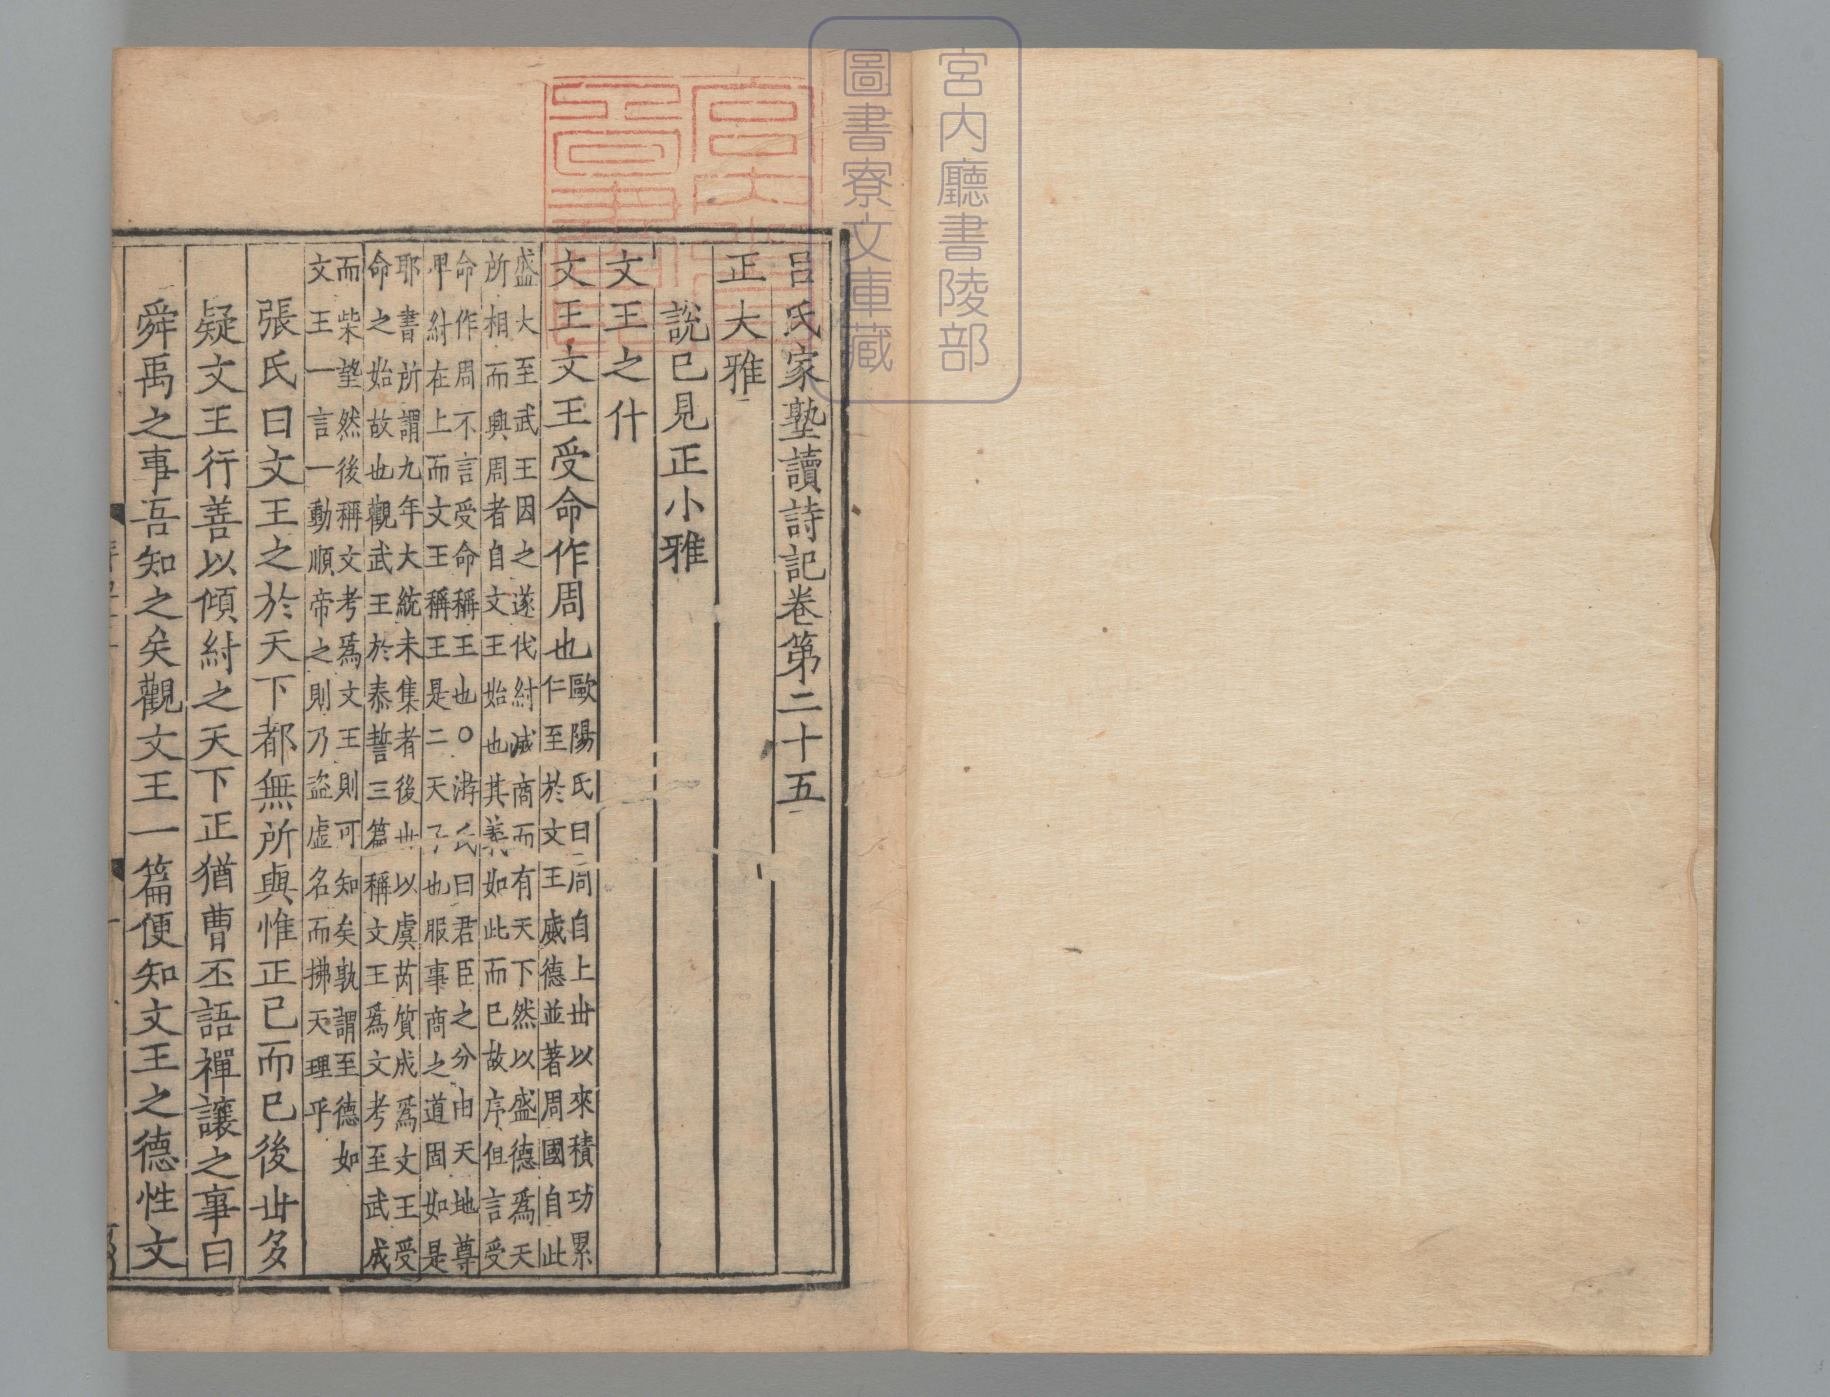 宮内廳書陵部
圖書寮文庫蔵
呂氏家塾讀詩記卷第二十五
正大雅
說已見正小雅
文王之什
文王文王受命作周也
歐陽氏曰周自上世以來積功累
仁至於文王威德並著周國自此
盛大至武王因之遂伐紂滅商而有天下然以盛德爲天
所相而興周者自文王始也其義如此而已故序但言受
命作周不言受命稱王也○游氏曰君臣之分由天地尊
卑紂在上而文王稱王是二天子也服事商之道固如是
耶書所謂九年大統未集者後世以虞芮質成爲文王受
命之始故也觀武王於泰誓三篇稱文王爲文考至武成
而柴望然後稱文考爲文王則可知矣孰謂至德如
文王一言一動順帝之則乃盜虛名而拂天理乎
張氏曰文王之於天下都無所與惟正已而已後世多
疑文王行善以傾紂之天下正猶曹丕語禪讓之事曰
舜禹之事吾知之矣觀文王一篇便知文王之德性文